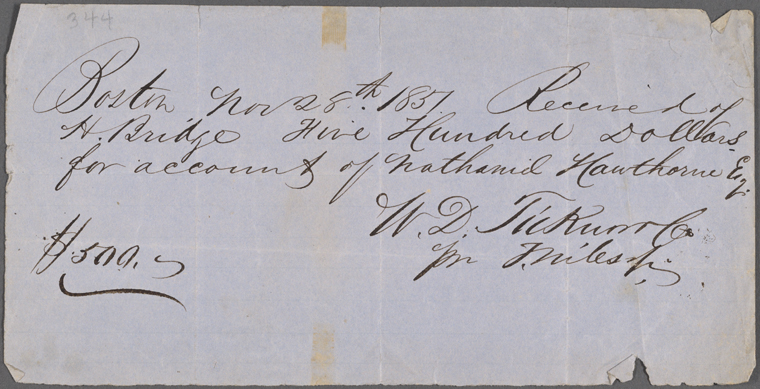 344
Boston Nov 28th. 1857 Received of
H. Bridge Five Hundred Dollars
for account of Nathaniel Hawthorne Esq.
W. D. Ticknor Co
$500.